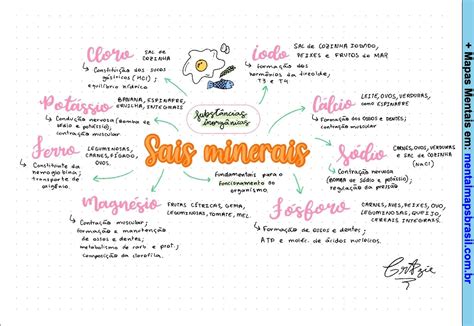 Cloro
SAL DE
COZINHA
Constituição dos sucos
gástricos (HCl);
equilíbrio hídrico
Iodo
SAL DE COZINHA IODADO,
PEIXES E FRUTOS DO MAR
Formação dos
hormônios da tireoide,
T3 e T4
Potássio
BANANA, ESPINAFRE,
ERVILHA, INTEGRAIS
Condução nervosa (Bomba de
sódio e potássio),
contração muscular
substâncias
inorgânicas
Cálcio
LEITE, OVOS, VERDURAS,
como ESPINAFRE
Formação dos ossos e dentes;
contração muscular
Ferro
LEGUMINOSAS,
CARNES, FÍGADO,
OVOS
Constituinte da
hemoglobina;
transporte de
oxigênio.
Sais minerais
fundamentais para o
funcionamento do
organismo.
Sódio
CARNES, OVOS, VERDURAS
e SAL DE COZINHA
(NaCl)
Contração nervosa
(BOMBA de sódio e potássio);
regulação da pressão
Magnésio
FRUTAS CÍTRICAS, GEMA,
LEGUMINOSAS, TOMATE, MEL.
Contração muscular;
formação e manutenção
de ossos e dentes;
metabolismo de carb. e prot.;
composição da clorofila.
Fósforo
CARNES, AVES, PEIXES, OVO,
LEGUMINOSAS, QUEIJO,
CEREAIS INTEGRAIS.
Formação de ossos e dentes;
ATP e moléc. de ácidos nucleicos.
+ Mapas Mentais em: mentalmapsbrasil.com.br